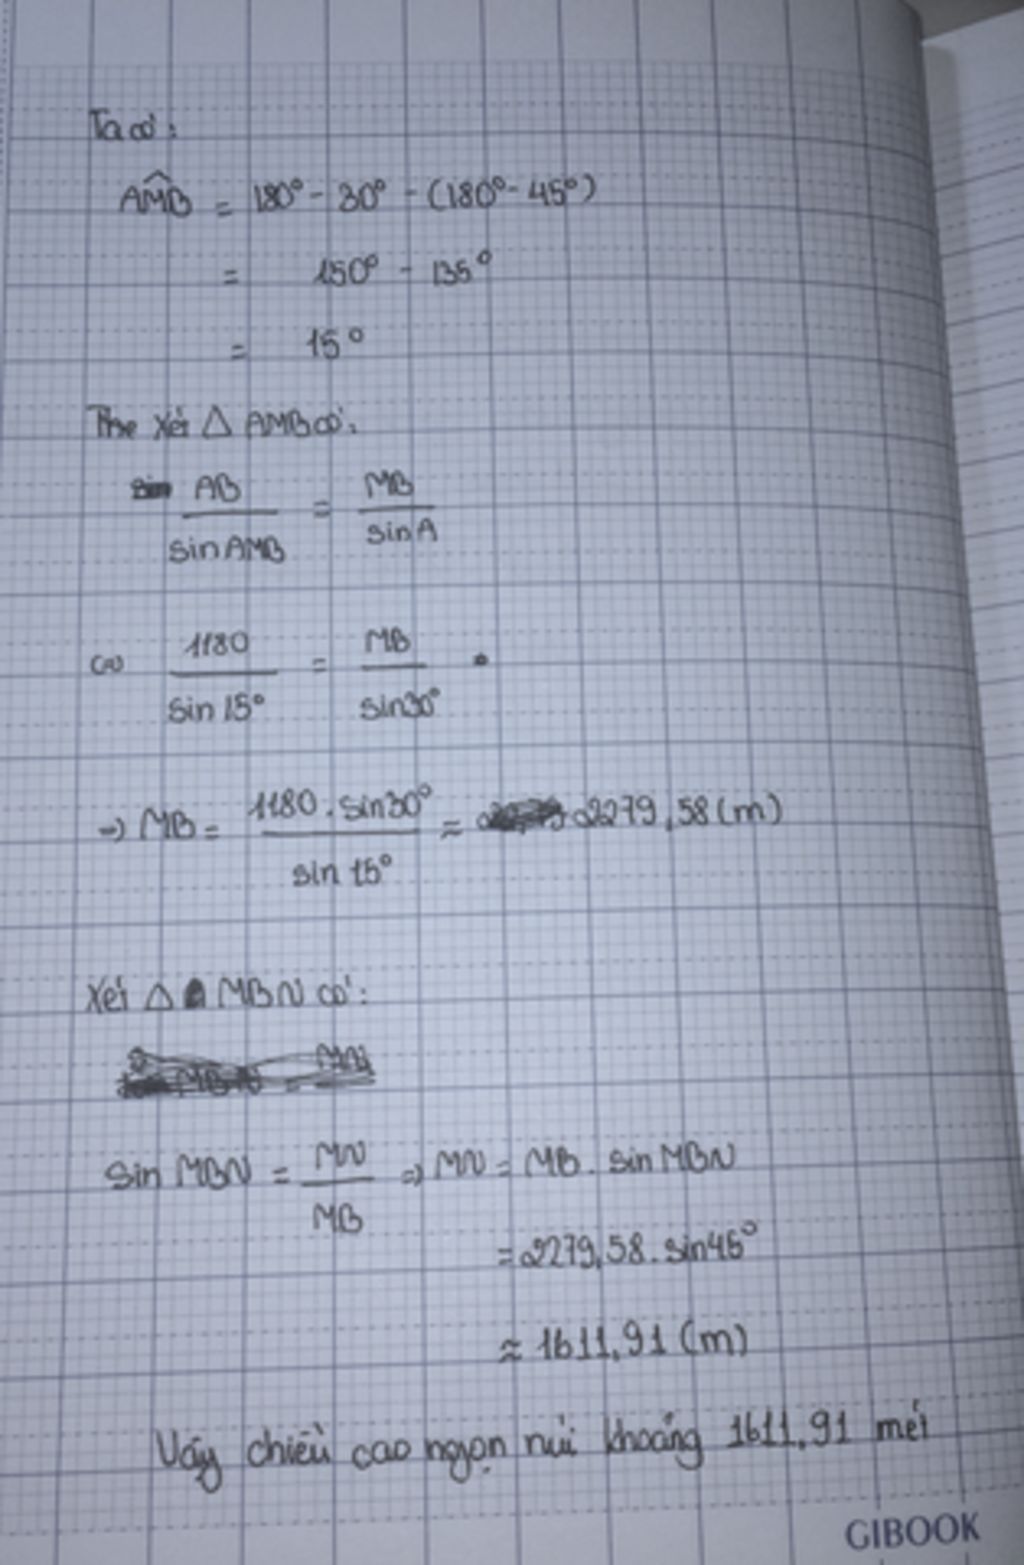 Ta có:
AMB = 180° - 30° - (180° - 45°)
= 150° - 135°
= 15°
Xét △ AMB có:
AB / sin AMB = MB / sin A
1180 / sin 15° = MB / sin 30°
=> MB = 1180 . sin 30° / sin 15° ≈ 2279,58 (m)
Xét △ MBN có:
Sin MBN = MN / MB => MN = MB . sin MBN
= 2279,58 . sin 45°
≈ 1611,91 (m)
Vậy chiều cao ngọn núi khoảng 1611,91 mét
GIBOOK